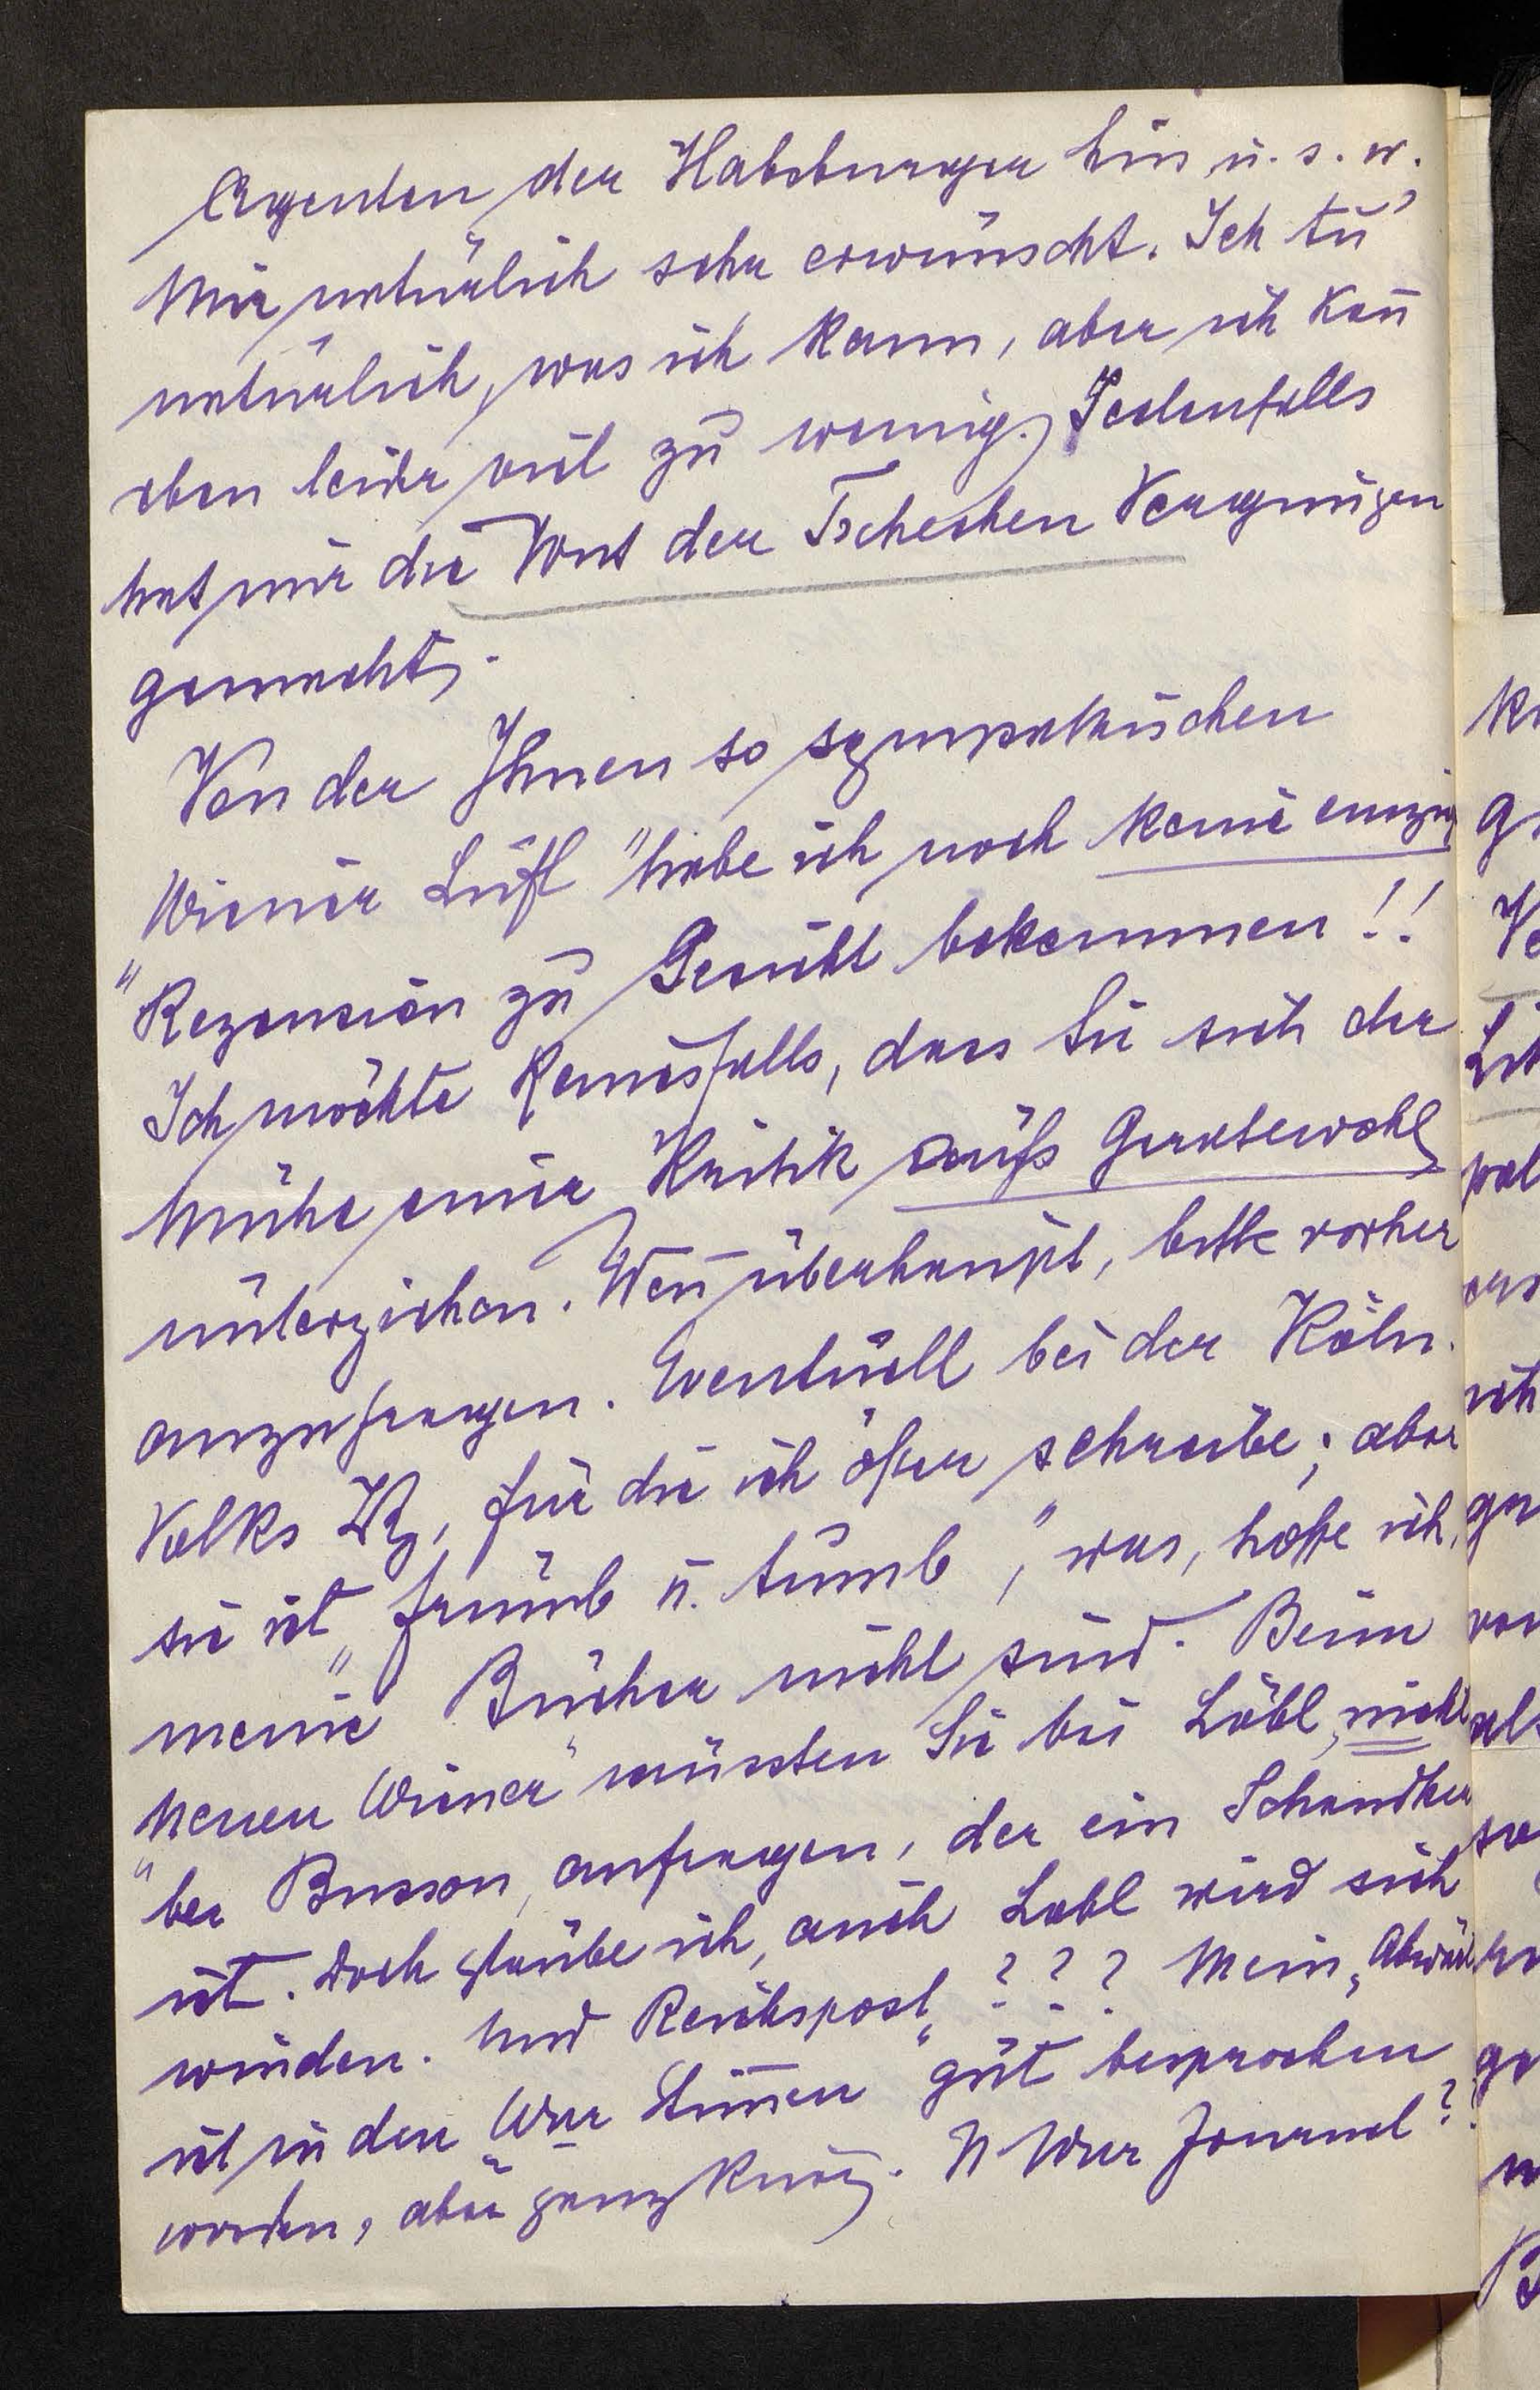 Agenten der Habsburger hin u. s. w.
Mir natürlich sehr erwünscht. Ich tu'
natürlich, was ich kann, aber ich kan̄
eben leider viel zu wenig. Jedenfalls
hat mir die Wut der Tschechen Vergnügen
gemacht.
Von der Ihnen so sympathischen
Wiener Luft" habe ich noch keine einzig
"Rezension zu Gesicht bekommen!!
Ich möchte keinesfalls, dass Sie sich der
Mühe einer Kritik aufs Geratewohl
unterziehen. Wen̄ überhaupt, bitte vorher
anzufragen. Eventuell bei der Köln.
Volks Ztg, für die ich öfter schreibe; aber
sie ist „frumb u. tumb", was, hoffe ich,
meine Bücher nicht sind. Beim
Neuen Wiener" müssten Sie bei Löbl, nicht
"bei Busson, anfragen, der ein Schandker
ist. Doch glaube ich, auch Löbl wird sich
winden. Und Reichspost"??? Mein „
ist in den Wner Stim̄en" gut besprochen
worden, aber ganz kurz. N Wner Journal?